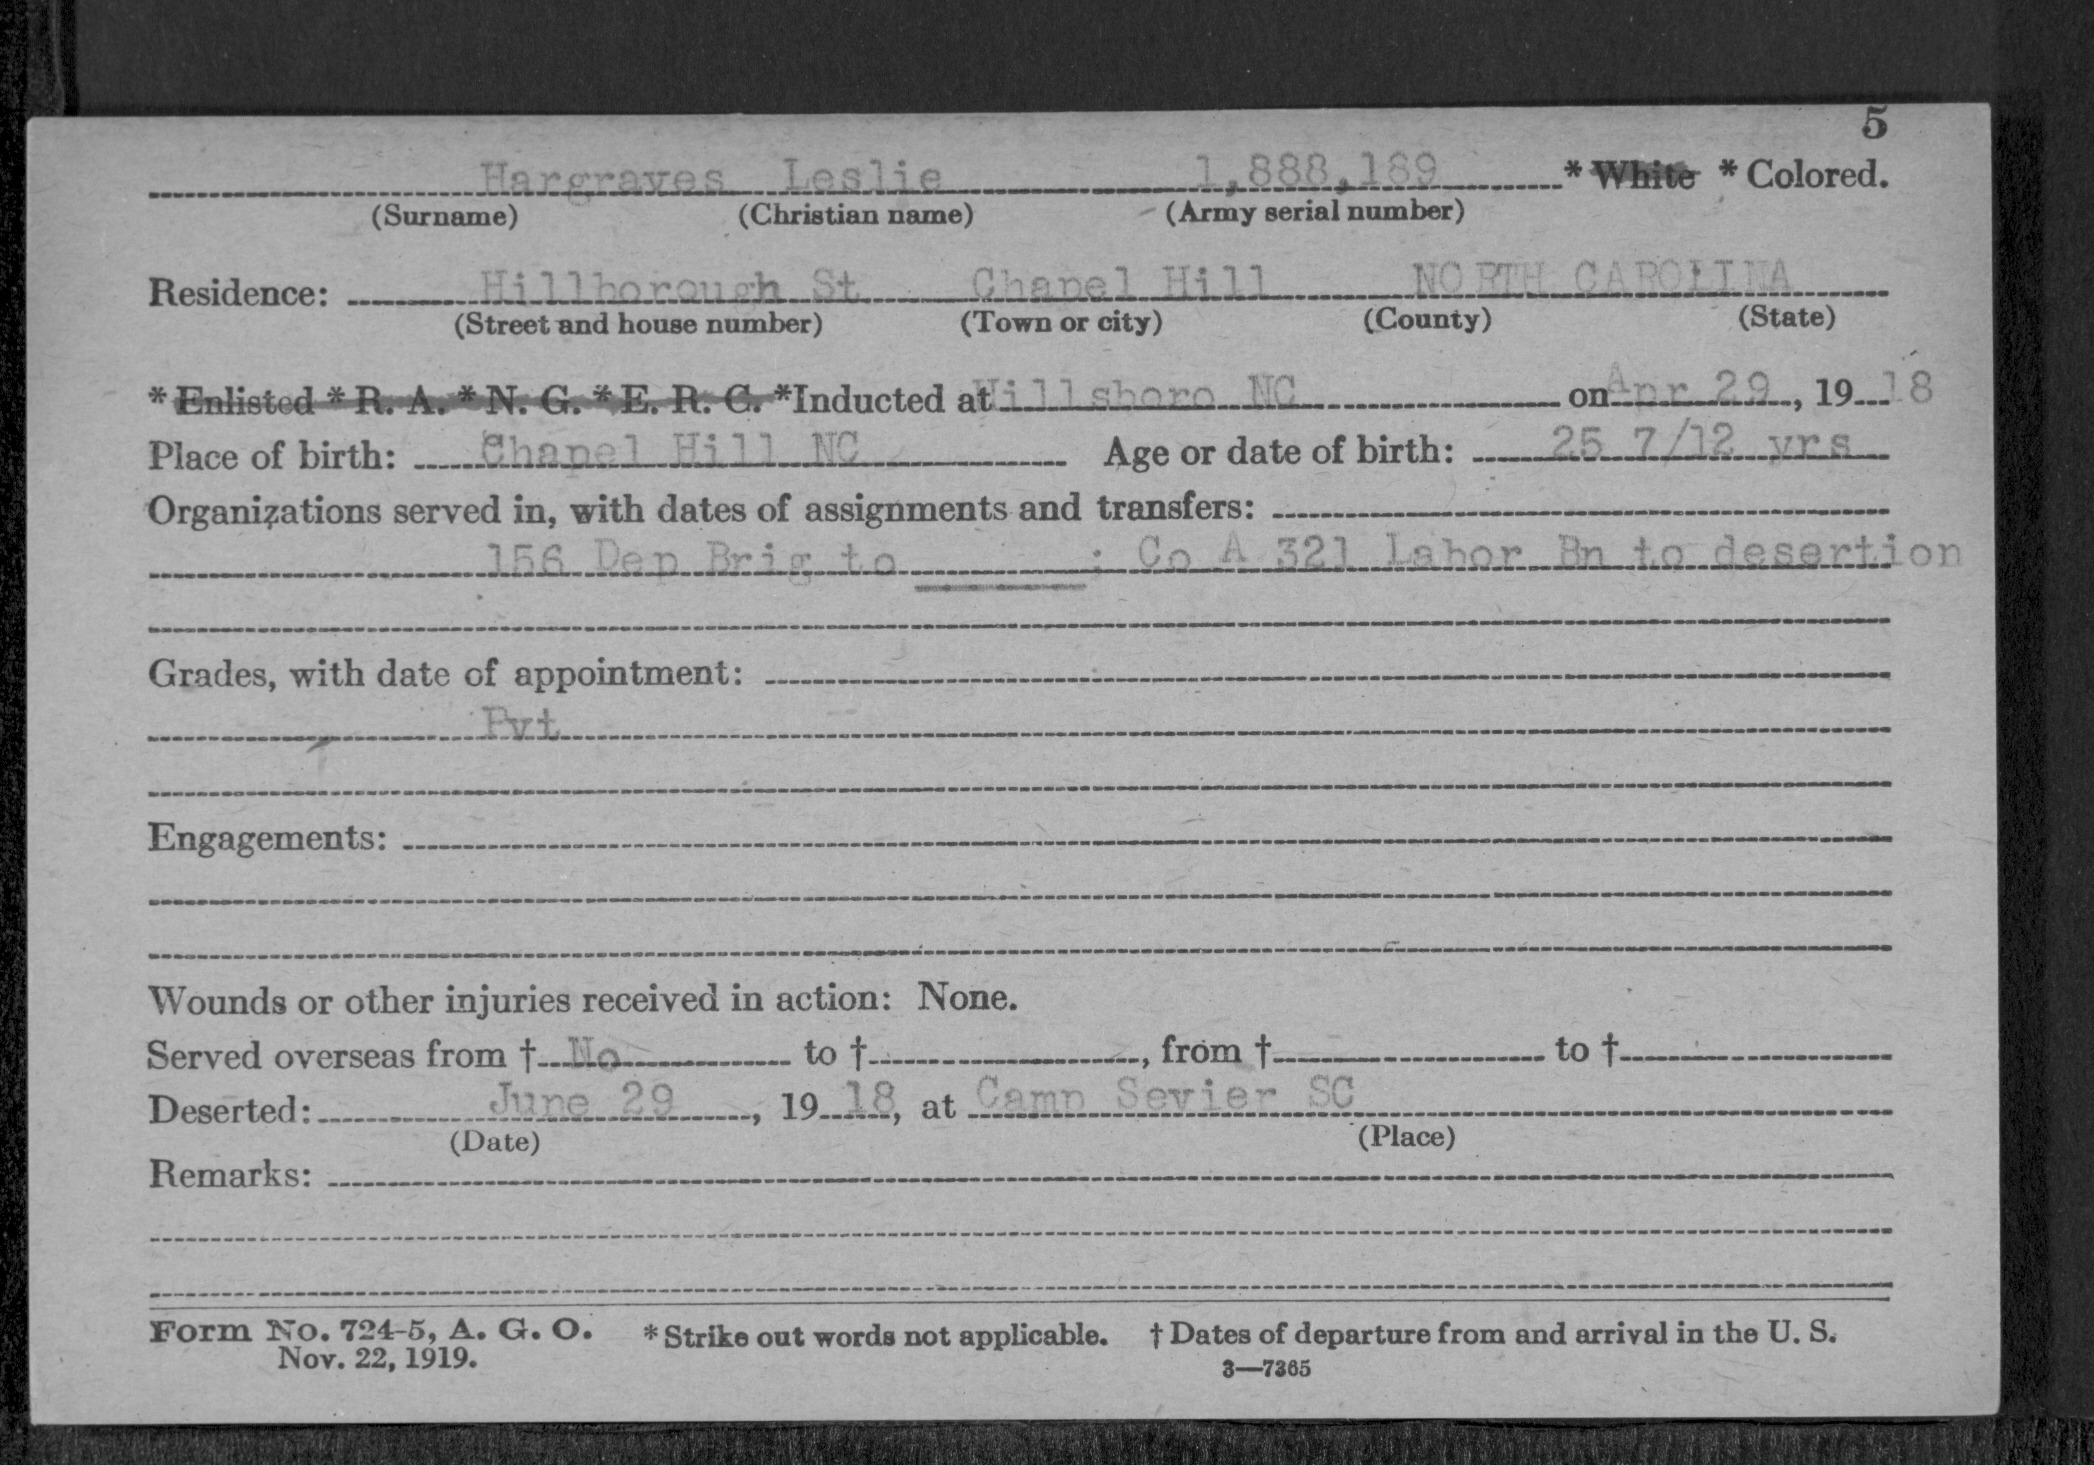 5
Hargraves Leslie 1,888,189 * White * Colored.
(Surname) (Christian name) (Army serial number)
Residence: Hillborough St Chapel Hill NORTH CAROLINA
(Street and house number) (Town or city) (County) (State)
* Enlisted * R. A. * N. G. * E. R. C. *Inducted at Hillsboro NC on Apr 29, 19 18
Place of birth: Chapel Hill NC Age or date of birth: 25 7/12 yrs
Organizations served in, with dates of assignments and transfers:
156 Dep Brig to ______; Co A 321 Labor Bn to desertion
Grades, with date of appointment:
Pvt
Engagements:
Wounds or other injuries received in action: None.
Served overseas from † No to †, from † to †
Deserted: June 29, 19 18, at Camp Sevier SC
(Date) (Place)
Remarks:
Form No. 724-5, A. G. O. * Strike out words not applicable. † Dates of departure from and arrival in the U. S.
Nov. 22, 1919. 3—7365